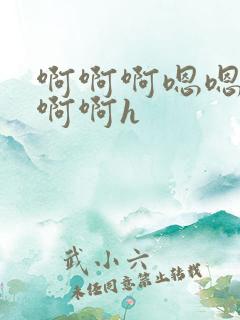 啊啊啊嗯嗯
啊啊h
武小六
未经同意禁止转载